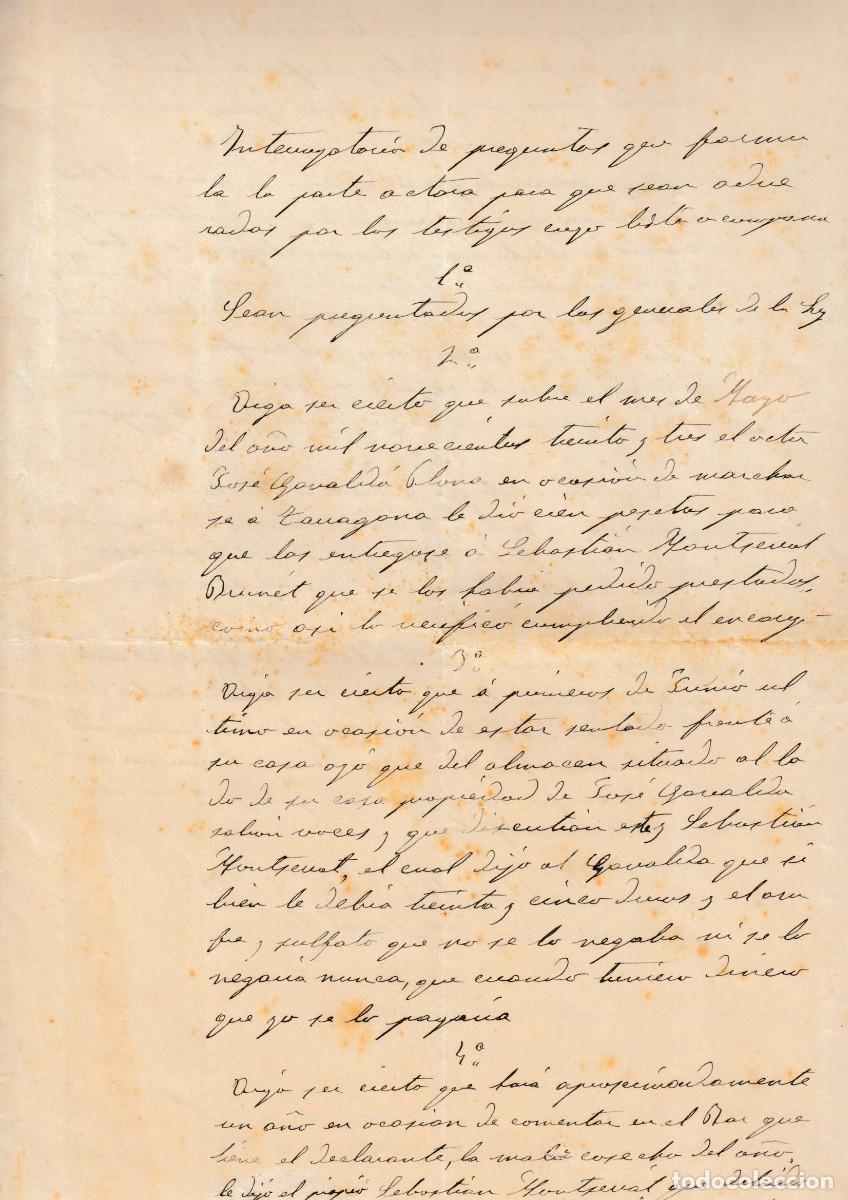 Interrogatorio de preguntas que formu
la la parte actora para que sean adve
rados por los testigos cuya lista acompaña
1ª
Sean preguntados por las generales de la Ley
2ª
Diga ser cierto que sobre el mes de Mayo
del año mil novecientos treinta y tres el actor
José Gavaldá Plana en ocasión de marchar
se á Tarragona le dió cien pesetas para
que las entregase á Sebastián Montserrat
Brunét que se los habia pedido prestados,
como asi lo verificó cumpliendo el encarg-
3ª
Diga ser cierto que á primeros de Junio ul
timo en ocasión de estar sentado frente á
su casa oyó que del almacen situado al la
do de su casa propiedad de José Gavalda
salian voces y que discutian este y Sebastián
Montserrat, el cual dijo al Gavalda que si
bien le debia treinta y cinco duros y el azu
fre y sulfato que no se lo negaba ni se lo
negaria nunca, que cuando tuviera dinero
que ya se lo pagaria
4ª
Diga ser cierto que hará aproximadamente
un año en ocasion de comentar en el Bar que
tiene el declarante, la mala cosecha del año,
le dijo el propio Sebastián Montserrat que debia
todocoleccion